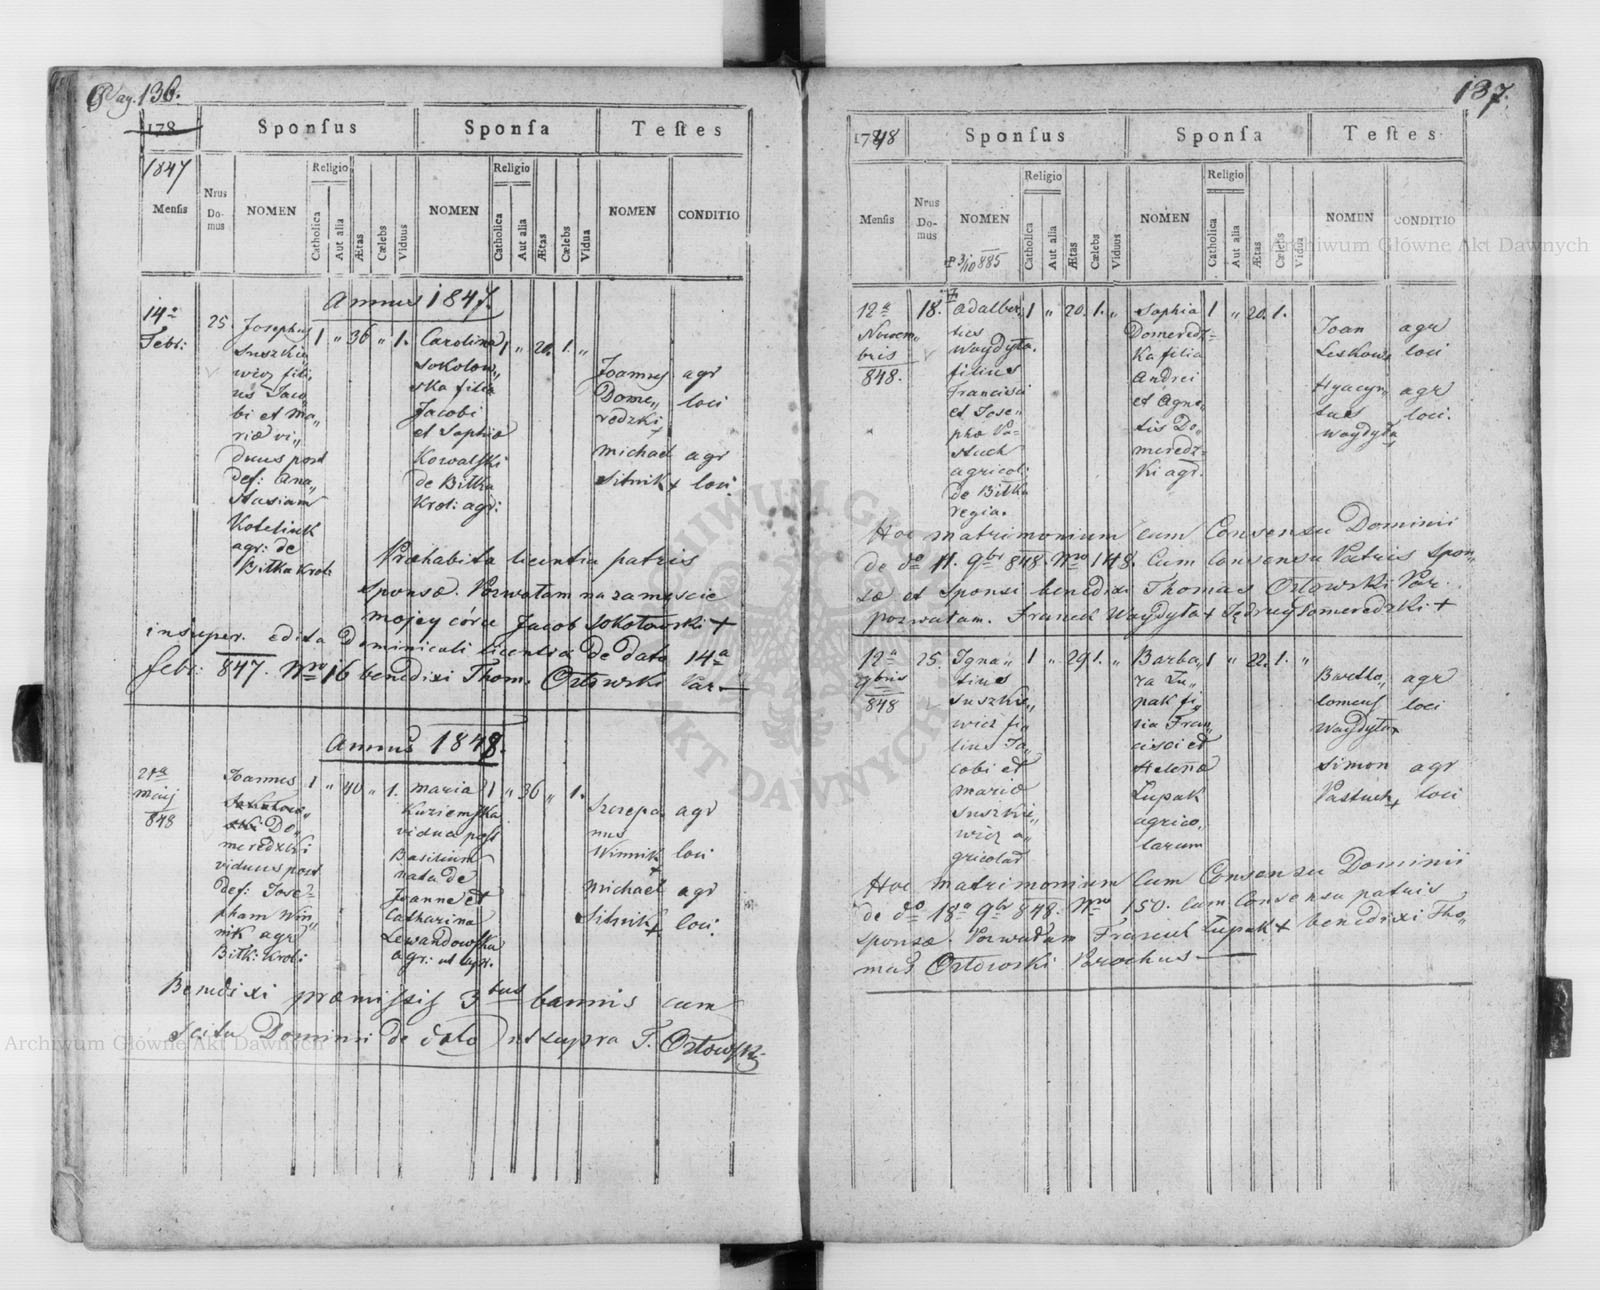 Pag. 136.
178
Sponsus Sponsa Testes
1847
Mensis
Nrus Domus
NOMEN
Religio
Catholica
Aut alia
Ætas
Cælebs
Viduus
NOMEN
Religio
Catholica
Aut alia
Ætas
Cælebs
Vidua
NOMEN
CONDITIO
Annus 1847.
14a
Febr:
25.
Josephus
Suszkie„
wicz fili„
us Jaco„
bi et Ma„
riæ vi„
duus post
def: Ana„
stasiam
Koteliuk
agr: de
Bitka Krol:
1 „ 36 „ 1.
Carolina
Sokolow„
ska filia
Jacobi
et Sophiæ
Kowalski
de Bitka
Krol: agr:
1 „ 20. 1. „
Joannes agr
Dome„ loci
redzki +
Michael agr
Sitnik + loci.
Præhabita licentia patris
sponsæ. Pozwalam na zamęscie
mojey córce Jacob Sokołowski +
insuper edita Dominicali licentia de dato 14a
Febr: 847. Nro 16 benedixi Thom. Orłowski Par
Annus 1848.
21a
Maij
848
Joannes
Do„
meredzki
viduus post
def: Jose„
pham Win„
nik agr
Bitk: Krol:
1 „ 40 „ 1.
Maria
Kuziemska
vidua post
Basilium
nata de
Joanne et
Catharina
Lewandowska
agr: ut supr.
1 „ 36 „ 1.
Szczepa„ agr
nus
Winnik loci
+
Michael agr
Sitnik + loci.
Benedixi præmissis 3bus bannis cum
scitu Dominii de dato ut supra T. Orłowski
137.
17848
Sponsus Sponsa Testes
Mensis
Nrus Domus
NOMEN
Religio
Catholica
Aut alia
Ætas
Cælebs
Viduus
NOMEN
Religio
Catholica
Aut alia
Ætas
Cælebs
Vidua
NOMEN
CONDITIO
3/10 885
12a
Novem„
bris
848.
18.
Adalber„
tus
Waydyła.
filius
Francisci
et Jose„
phæ Pa„
stuch
agricol:
de Bitka
regia.
1 „ 20. 1. „
Sophia
Domeredz„
ka filia
Andrei
et Agne„
tis Do„
meredz„
ki agr.
1 „ 20. 1.
Joan agr
Leskow loci
Hyacyn„ agr
tus loci.
Waydyła
+
Hoc matrimonium cum Consensu Dominii
de do 11. 9br 848. Nro 148. Cum Consensu Patris Spon„
sæ et Sponsi benedixi Thomas Orłowski Par.
pozwalam. Franek Waydyła + Jędrzey Domeredzki +
12a
9bris
848
25.
Igna„
tius
Suszkie„
wicz fi„
lius Ja„
cobi et
Mariæ
Suszkie„
wicz a„
gricolar
1 „ 29 1. „
Barba„
ra Łu„
pak fi„
lia Fran„
cisci et
Helenæ
Łupak
agrico„
larum
1 „ 22. 1. „
Bartło„ agr
lomeus loci
Waydyła
+
Simon agr
Pastuch + loci
Hoc matrimonium Cum Consensu Dominii
de do 18a 9br 848. Nro 150. Cum Consensu patris
sponsæ. Pozwalam Franek Łupak + benedixi Tho„
mas Orłowski Parochus
Archiwum Główne Akt Dawnych
Archiwum Główne Akt Dawnych
ARCHIWUM GŁÓWNE AKT DAWNYCH